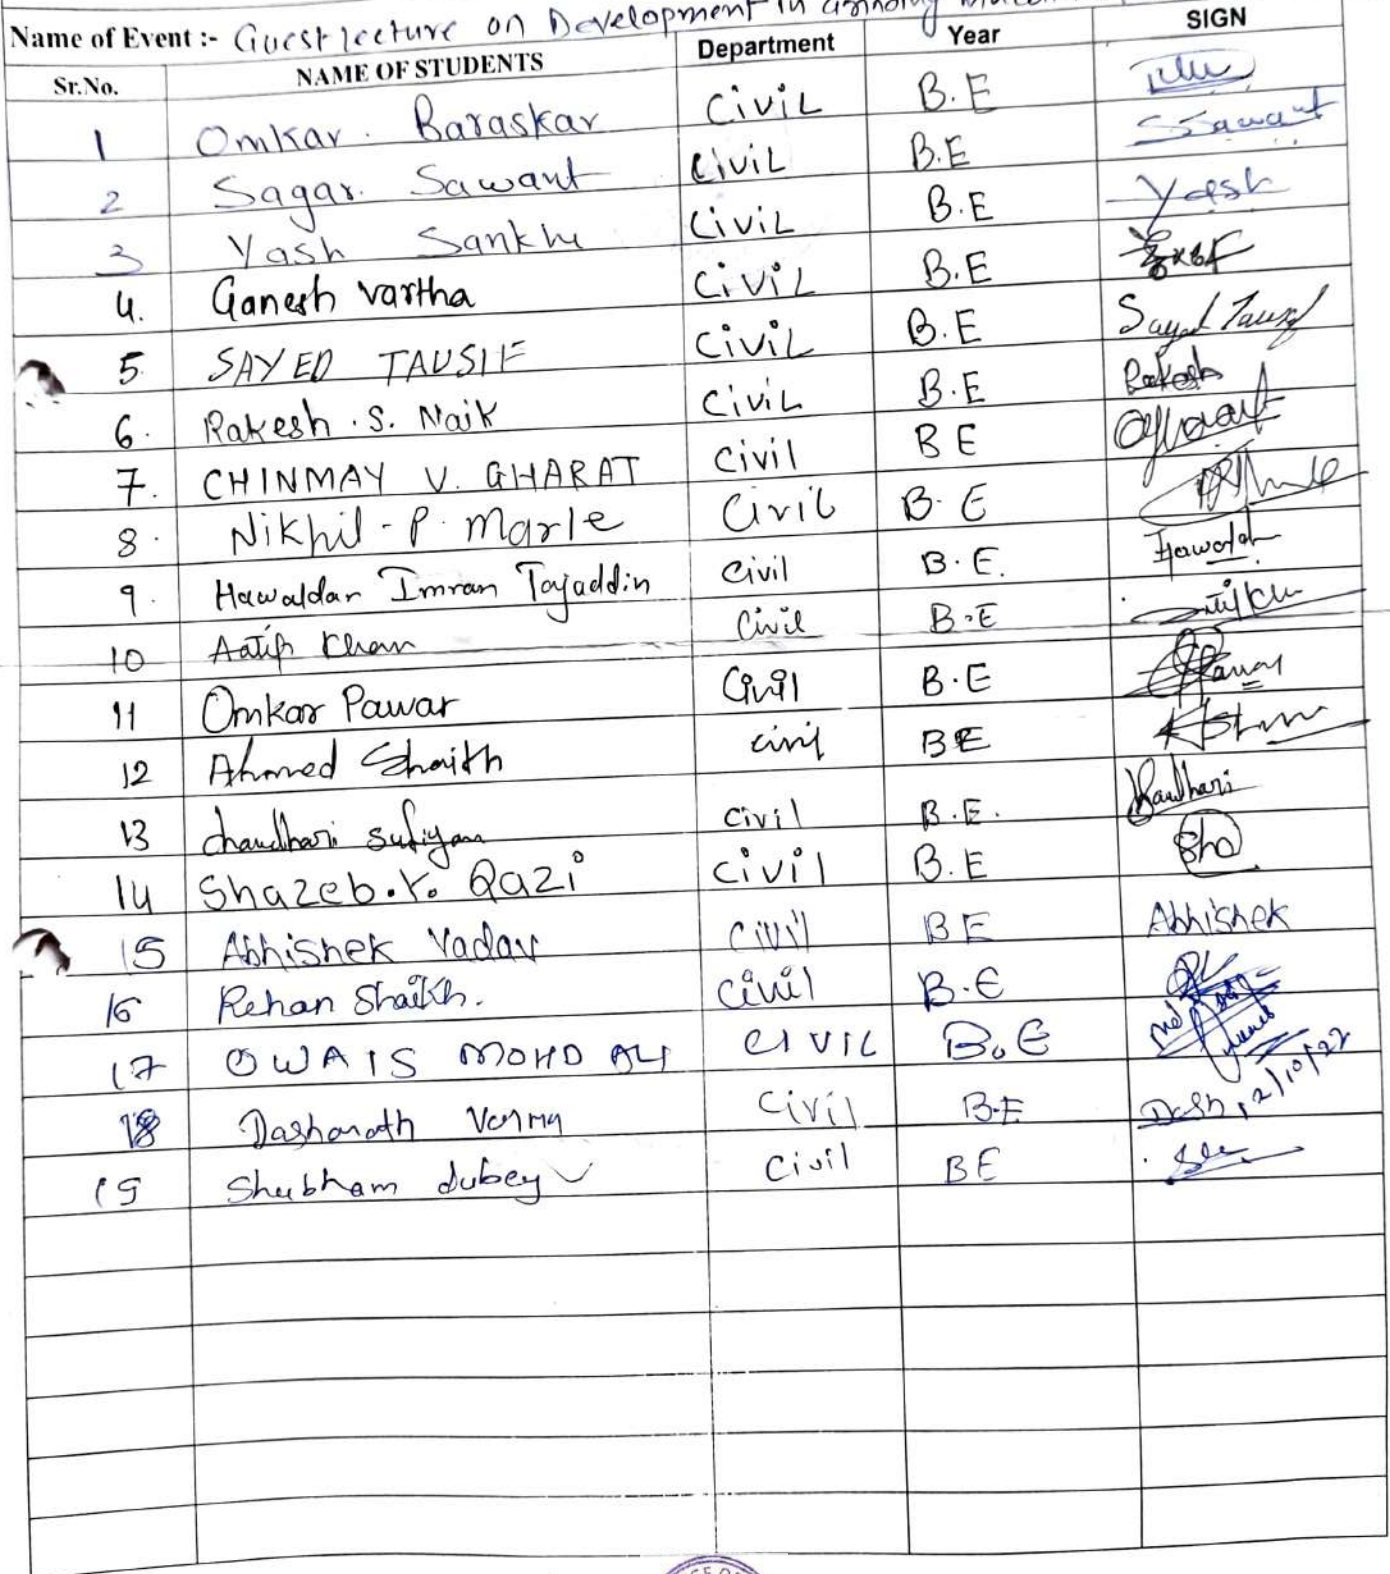 Name of Event :- Guest lecture on Development in
Sr.No. NAME OF STUDENTS Department Year SIGN
1 Omkar. Baraskar Civil B.E
2 Sagar. Sawant Civil B.E Sawant
3 Yash Sankhe Civil B.E Yash
4. Ganesh Vartha Civil B.E
5. SAYED TAUSIF Civil B.E Sayed Tausif
6. Rakesh . S. Naik Civil B.E Rakesh
7. CHINMAY V. GHARAT Civil BE
8. Nikhil - P. Marle Civil B.E
9. Hawaldar Imran Tajaddin Civil B.E.
10 Aatif Khan Civil B.E
11 Omkar Pawar Civil B.E Pawar
12 Ahmed Shaikh civil BE
13 chaudhari sufiyan civil B.E. Chaudhari
14 Shazeb.Y. Qazi civil B.E Sha
15 Abhishek Yadav Civil BE Abhishek
16 Rehan Shaikh. Civil B.E
17 OWAIS MOHD ALI CIVIL B.E
18 Dasharath Verma Civil B.E Dash 12/10/22
19 Shubham dubey Civil BE